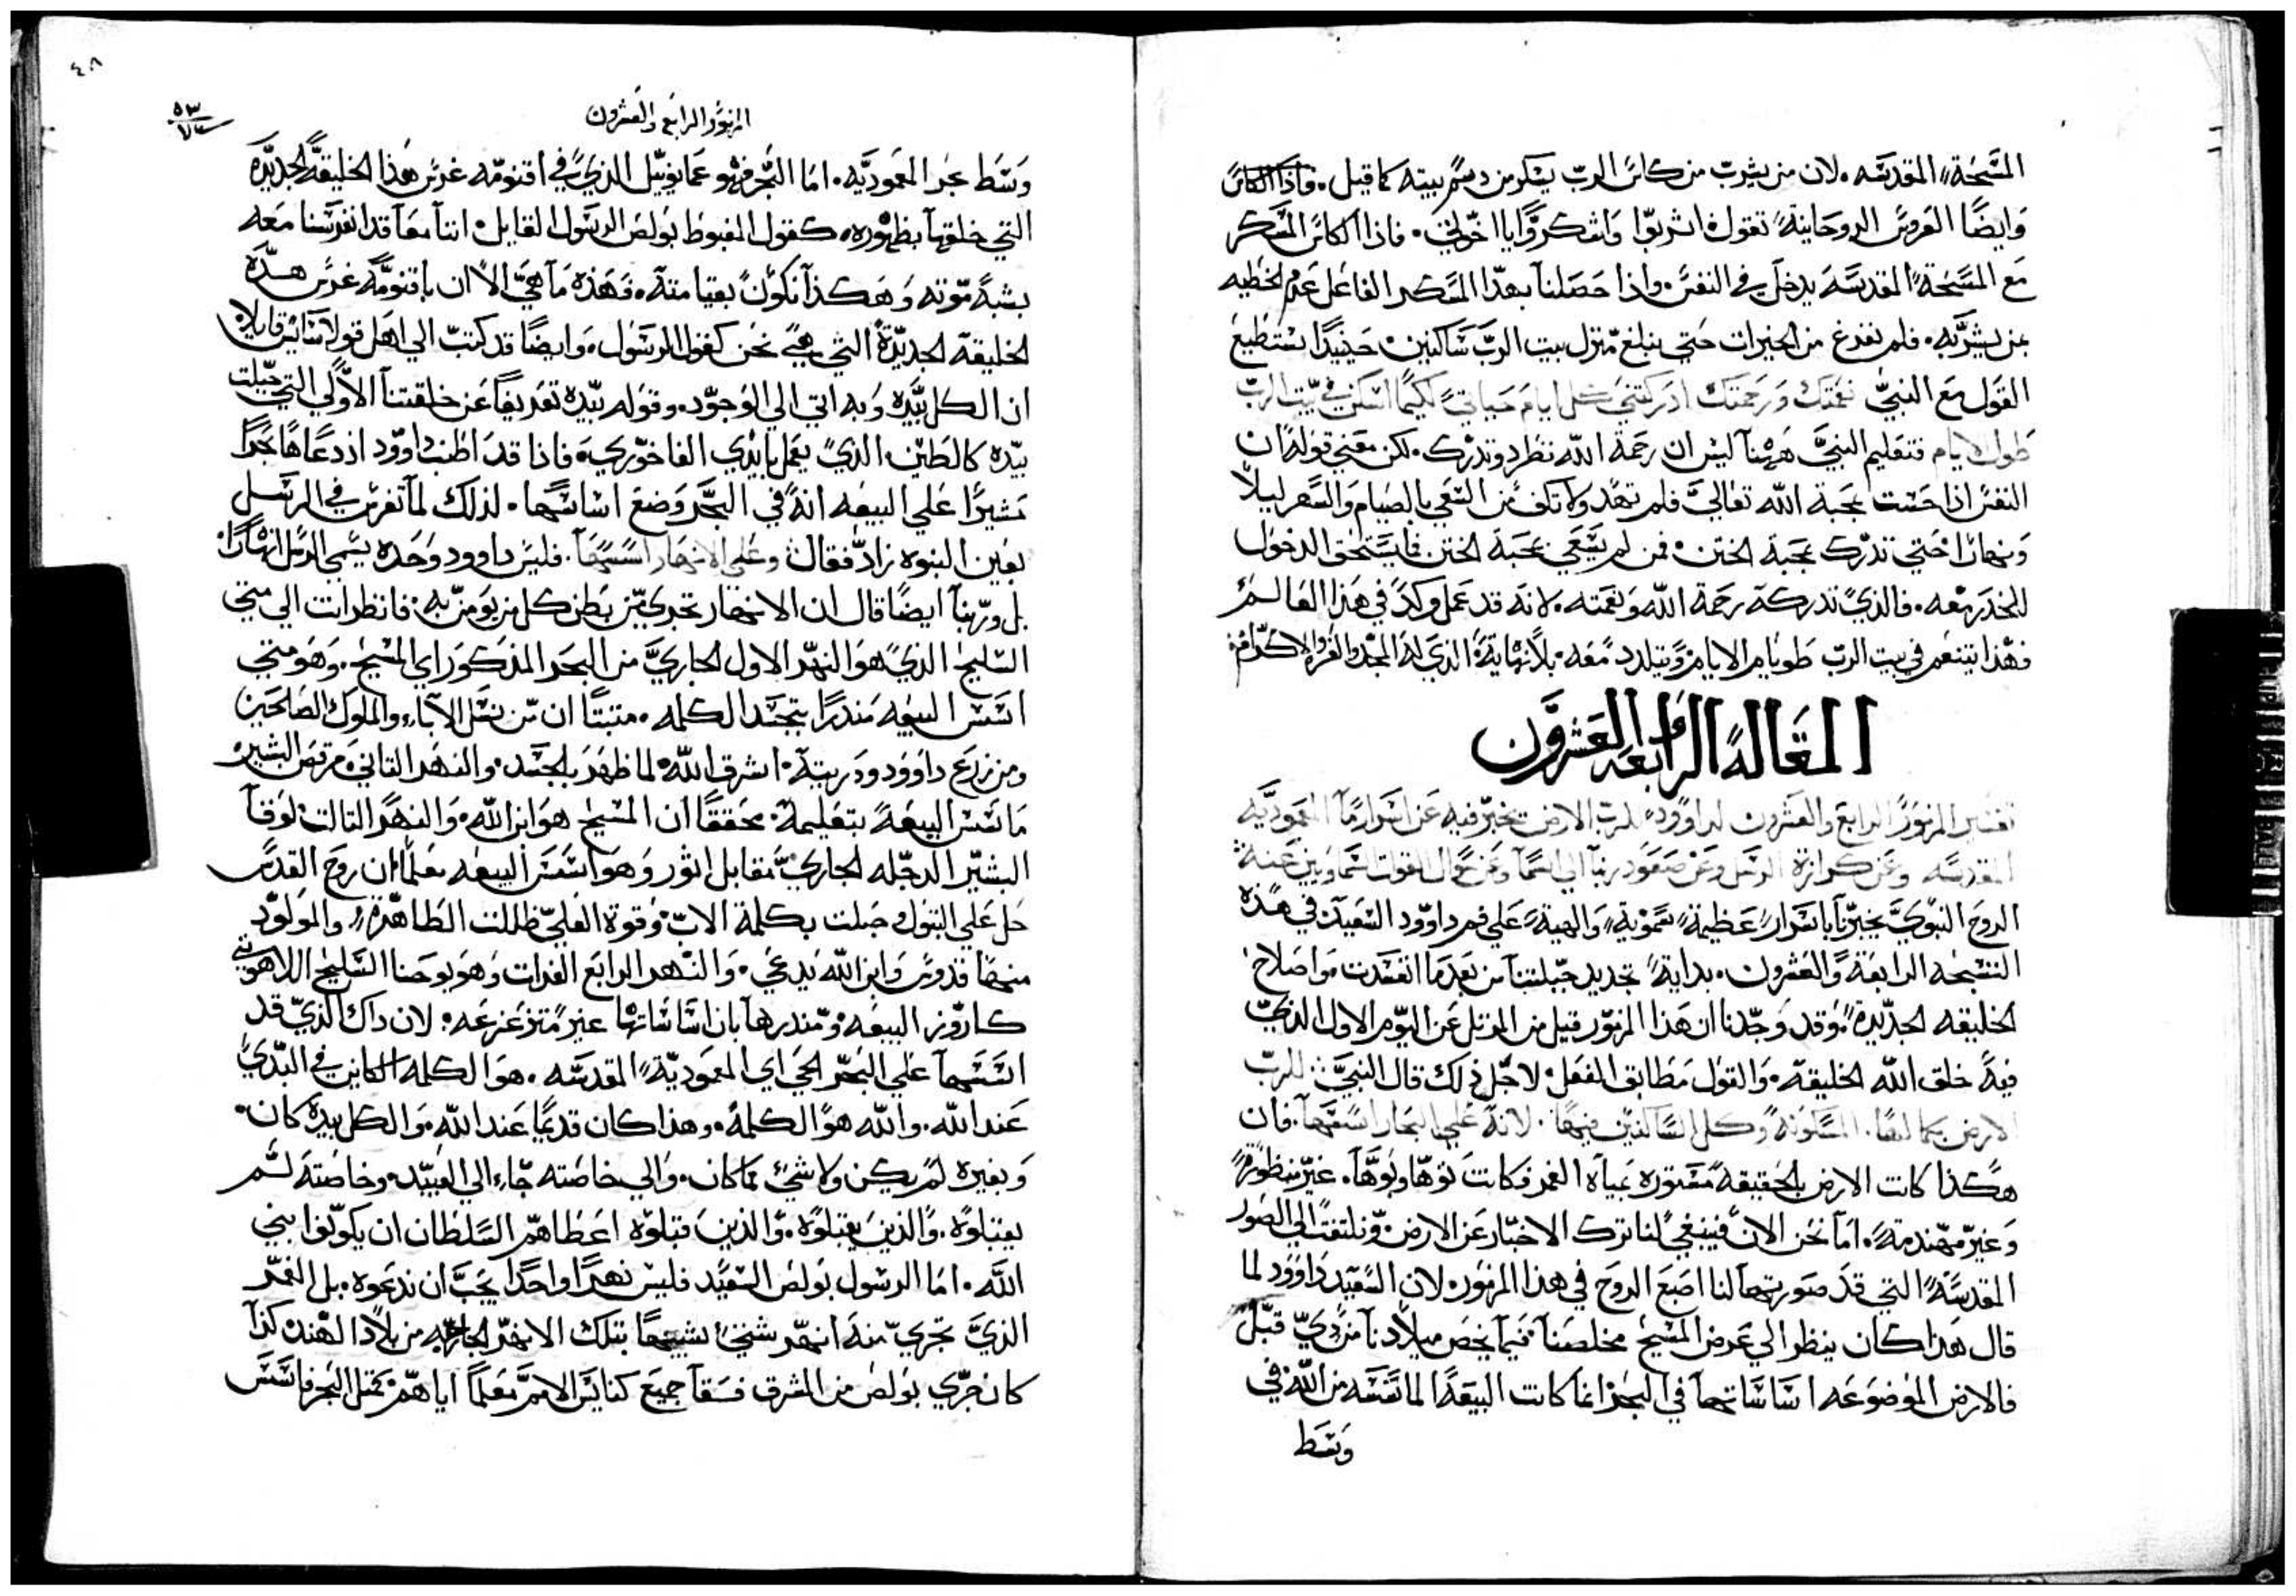 المسحة المقدسه. لان من يشرب من كاس الرب يسكر من دسم بيته كما قيل. واذا الكاس
وايضًا العروس الروحانية تقول اشربوا واشكروا يا اخوتي. فاذا الكاس المسكر
مع المسحة المقدسه يدخل في النفس. واذا حصلنا بهذا السكر الفاعل عدم الخطيه
بمن يشربه. فلم نفرغ من الخيرات حتي نبلغ منزل بيت الرب ساكنين. حينيذًا نستطيع
القول مع النبي نعمتك ورحمتك ادركتني كل ايام حياتي لكيما اسكن في بيت الرب
طول الايام فتعليم النبي ههنا ليس ان رحمة الله تطرد وتدرك. لكن معني قوله ان
النفس اذا حست بمحبة الله تعالي فلم تهد ولا تكف من السعي بالصيام والسهر ليلاً
ونهارًا حتي تدرك محبة الختن. فمن لم يسعي بمحبة الختن فما يستحق الدخول
للخدر معه. فالذي تدركه رحمة الله ونعمته. لانه قد عمل وكد في هذا العالم
فهذا يتنعم في بيت الرب طويلم الايام ويتلدد معه. بلا نهاية الذي له المجد والعز والاكرام
المقالة الرابعه والعشرون
تفسير المزمور الرابع والعشرون لداوود للرب الارض يخبر فيه عن اسرار ما المعموديه
المقدسه وعن كرازة الرسل وعن صعود ربنا الي السما وعن حال القوات السماويين عنه
الروح النبوي يخبرنا باسرار عظيمة سموية والهية علي فم داوود السعيد في هذه
التسبحه الرابعة والعشرون. بداية تجديد جبلتنا من بعد ما انفسدت واصلاح
الخليقه الجديدة. وقد وجدنا ان هذا المزمور قيل من المرتل عن اليوم الاول الذي
فيه خلق الله الخليقة. والقول مطابق الفعل لاجل ذلك قال النبي: للرب
الارض بكمالها. المسكونة وكل الساكنين فيها. لانه علي البحار اسسها. فان
هكذا كانت الارض بالحقيقه مستوره بمياه الغمر فكانت توها وبوها. غير منظورة
وغير مهندمة. اما نحن الان فينبغي لنا ترك الاخبار عن الارض. ونلتفت الي الصور
المقدسة التي قد صورتها لنا اصبع الروح في هذا المزمور. لان السعيد داوود لما
قال هذا كان ينظر الي غرض المسيح مخلصنا فيما يخص ميلادنا من ذي قبل
فالارض الموضوعه اساساتها في البحر انما كانت البيعة الماسسه من الله في
وسط
٤٨
٥٣
المزمور الرابع والعشرون
وسط بحر المعموديه. اما البحر فهو عمانوييل الذي في اقنومه غرس هذا الخليقة الجديدة
التي خلقها بظهوره. كقول المغبوط بولص الرسول القايل اننا معًا قد انغرسنا معه
بشبه موته وهكذا نكون بقيامته. فهذه ما هي الا ان باقنومه غرس هذه
الخليقة الجديدة التي هي نحن كقول الرسول. وايضًا قد كتب الي اهل قولاسايس قايلا
ان الكل بيده وبه اتي الي الوجود. وقوله بيده تعريفًا عن خلقتنا الاولي التي جبلت
بيده كالطين الذي يعمل بايدي الفاخوري. فاذا قد اطنب داوود اذ دعاها بحرًا
مشيرًا علي البيعه انه في البحر وضع اساسها. لذلك لما تفرس في الرسل
بعين النبوه زاد فقال وعلي الانهار اسسها. فليس داوود وحده يسمي الرسل انهارًا
بل وربنا ايضًا قال ان الانهار تجري من بطن كل من يومن به. فانظر انت الي متي
السليح الذي هو النهر الاول الجاري من البحر المذكور اي المسيح. وهو متي
اسس البيعه منذرًا بتجسد الكلمه. متبتًا ان من نسل الاباء والملوك الصالحين
ومن زرع داوود ودريتة. اشرق الله لما ظهر بالجسد. والنهر التاني مرقص البشير
ماسس البيعة بتعليمة. محققًا ان المسيح هو ابن الله. والنهر التالت لوقا
البشير الدجله الجاري مقابل اتور وهو اسس البيعه معلمًا ان روح القدس
حل علي البتول وحبلت بكلمة الاب وقوة العلي ظللت الطاهرة. والمولود
منها قدوس وابن الله يدعي. والنهر الرابع الفرات وهو يوحنا السليح اللاهوتي
كاروز البيعه ومندرها بان اساساتها غير متزعزعه. لان داك الذي قد
اسسها علي البحر الحي اي المعمودية المقدسه. هو الكلمه الكاين في البدي
عند الله. والله هو الكلمه. وهذا كان قديمًا عند الله. والكل بيده كان
وبغيره لم يكن ولا شي مما كان. والي خاصته جاء الي العبيد. وخاصته لم
يقبلوه. والذين يقبلوه. والذين قبلوه اعطاهم السلطان ان يكونوا بني
الله. اما الرسول بولص السعيد فليس نهرًا واحدًا يجب ان ندعوه. بل الغمر
الذي تجري منه انهر شتي تشبيهًا بتلك الانهر الجاريه من بلاد الهند كذا
كان جري بولص من المشرق فسقا جميع كنايس الامم معلمًا اياهم كمثل البحر فاسس